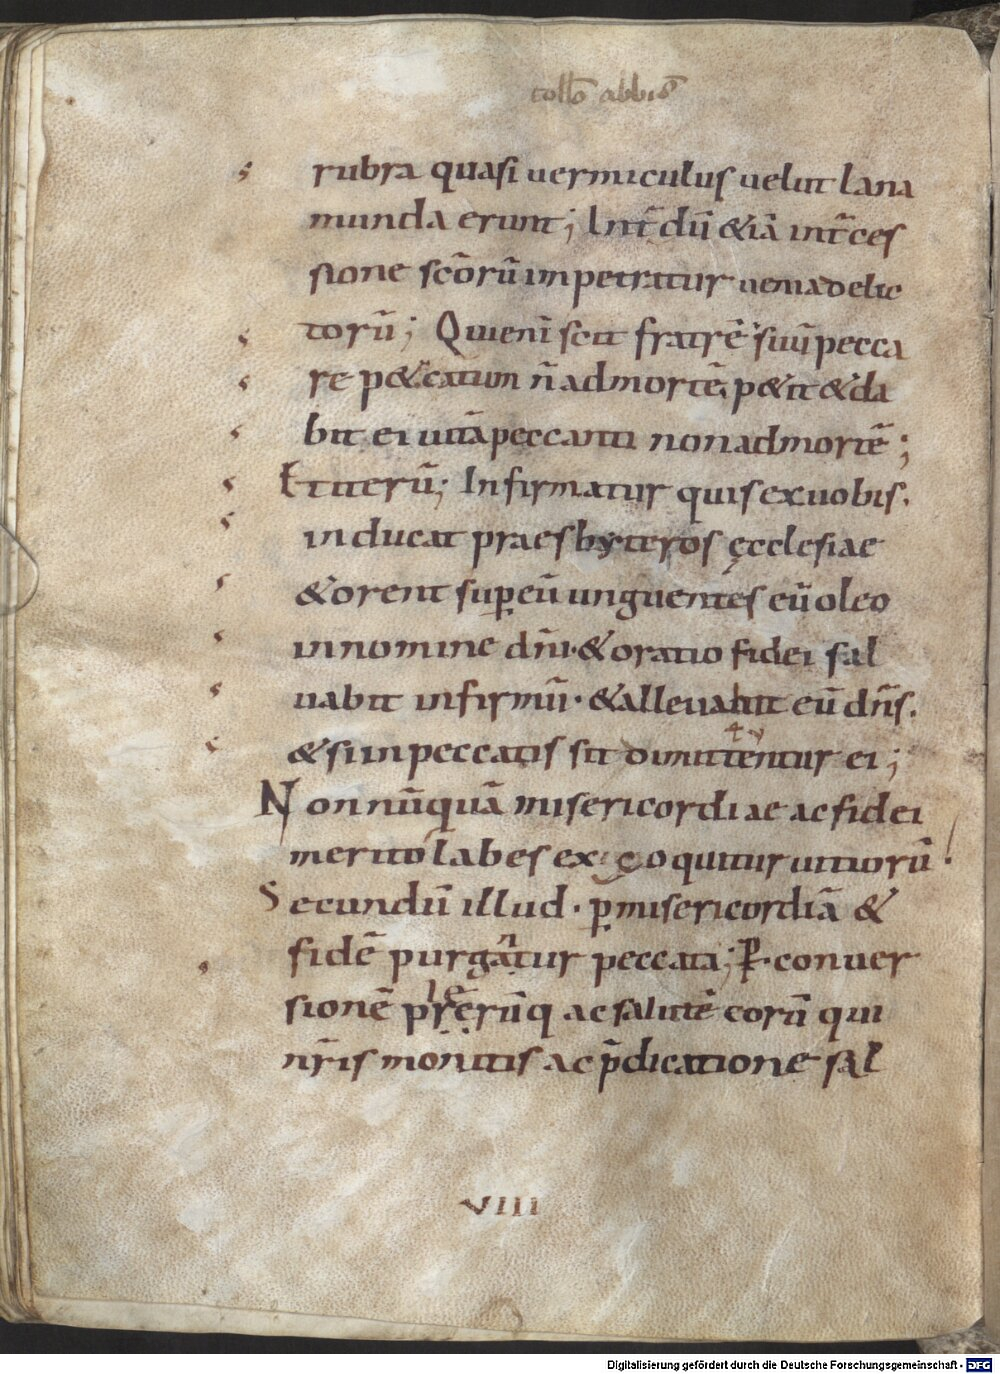 collō abbīs
rubra quasi uermiculus uelut lana
munda erunt; Int̄dū &iā int̄ces
sione sc̄orū impetratur uenia delic
torū; Qui enī scit fratrē suū pecca
re p&catum n̄ ad mortē. p&it & da
bit ei uitā peccanti non ad mortē;
Et iterū; Infirmatur quis ex uobis.
inducat praesbyteros ęcclesiae
& orent sup̱ eū unguentes eū oleo
in nomine dn̄i. & oratio fidei sal
uabit infirmū. & alleuabit eū dn̄s.
& si in peccatis sit dimittentur ei;
Non nūquā misericordiae ac fidei
merito labes ex coquitur uitiorū.
Secundū illud. p̱ misericordiā &
fidē purgantur peccata; P̱. conuer
sionē plerūq ac salutē eorū qui
nr̄is monitis ac p̄dicatione sal
VIII
Digitalisierung gefördert durch die Deutsche Forschungsgemeinschaft - DFG